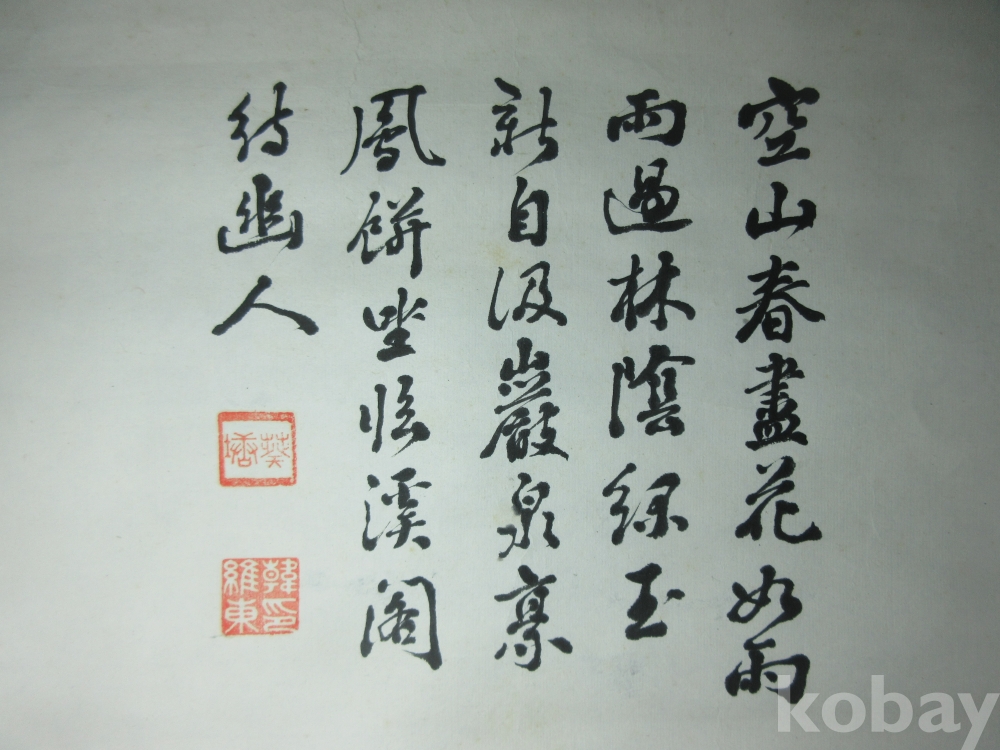 空山春盡花如雨
雨過林陰綠玉
新自汲巖泉烹
鳳餅坐臨溪閣
待幽人
葵
韓印
維東
kobay